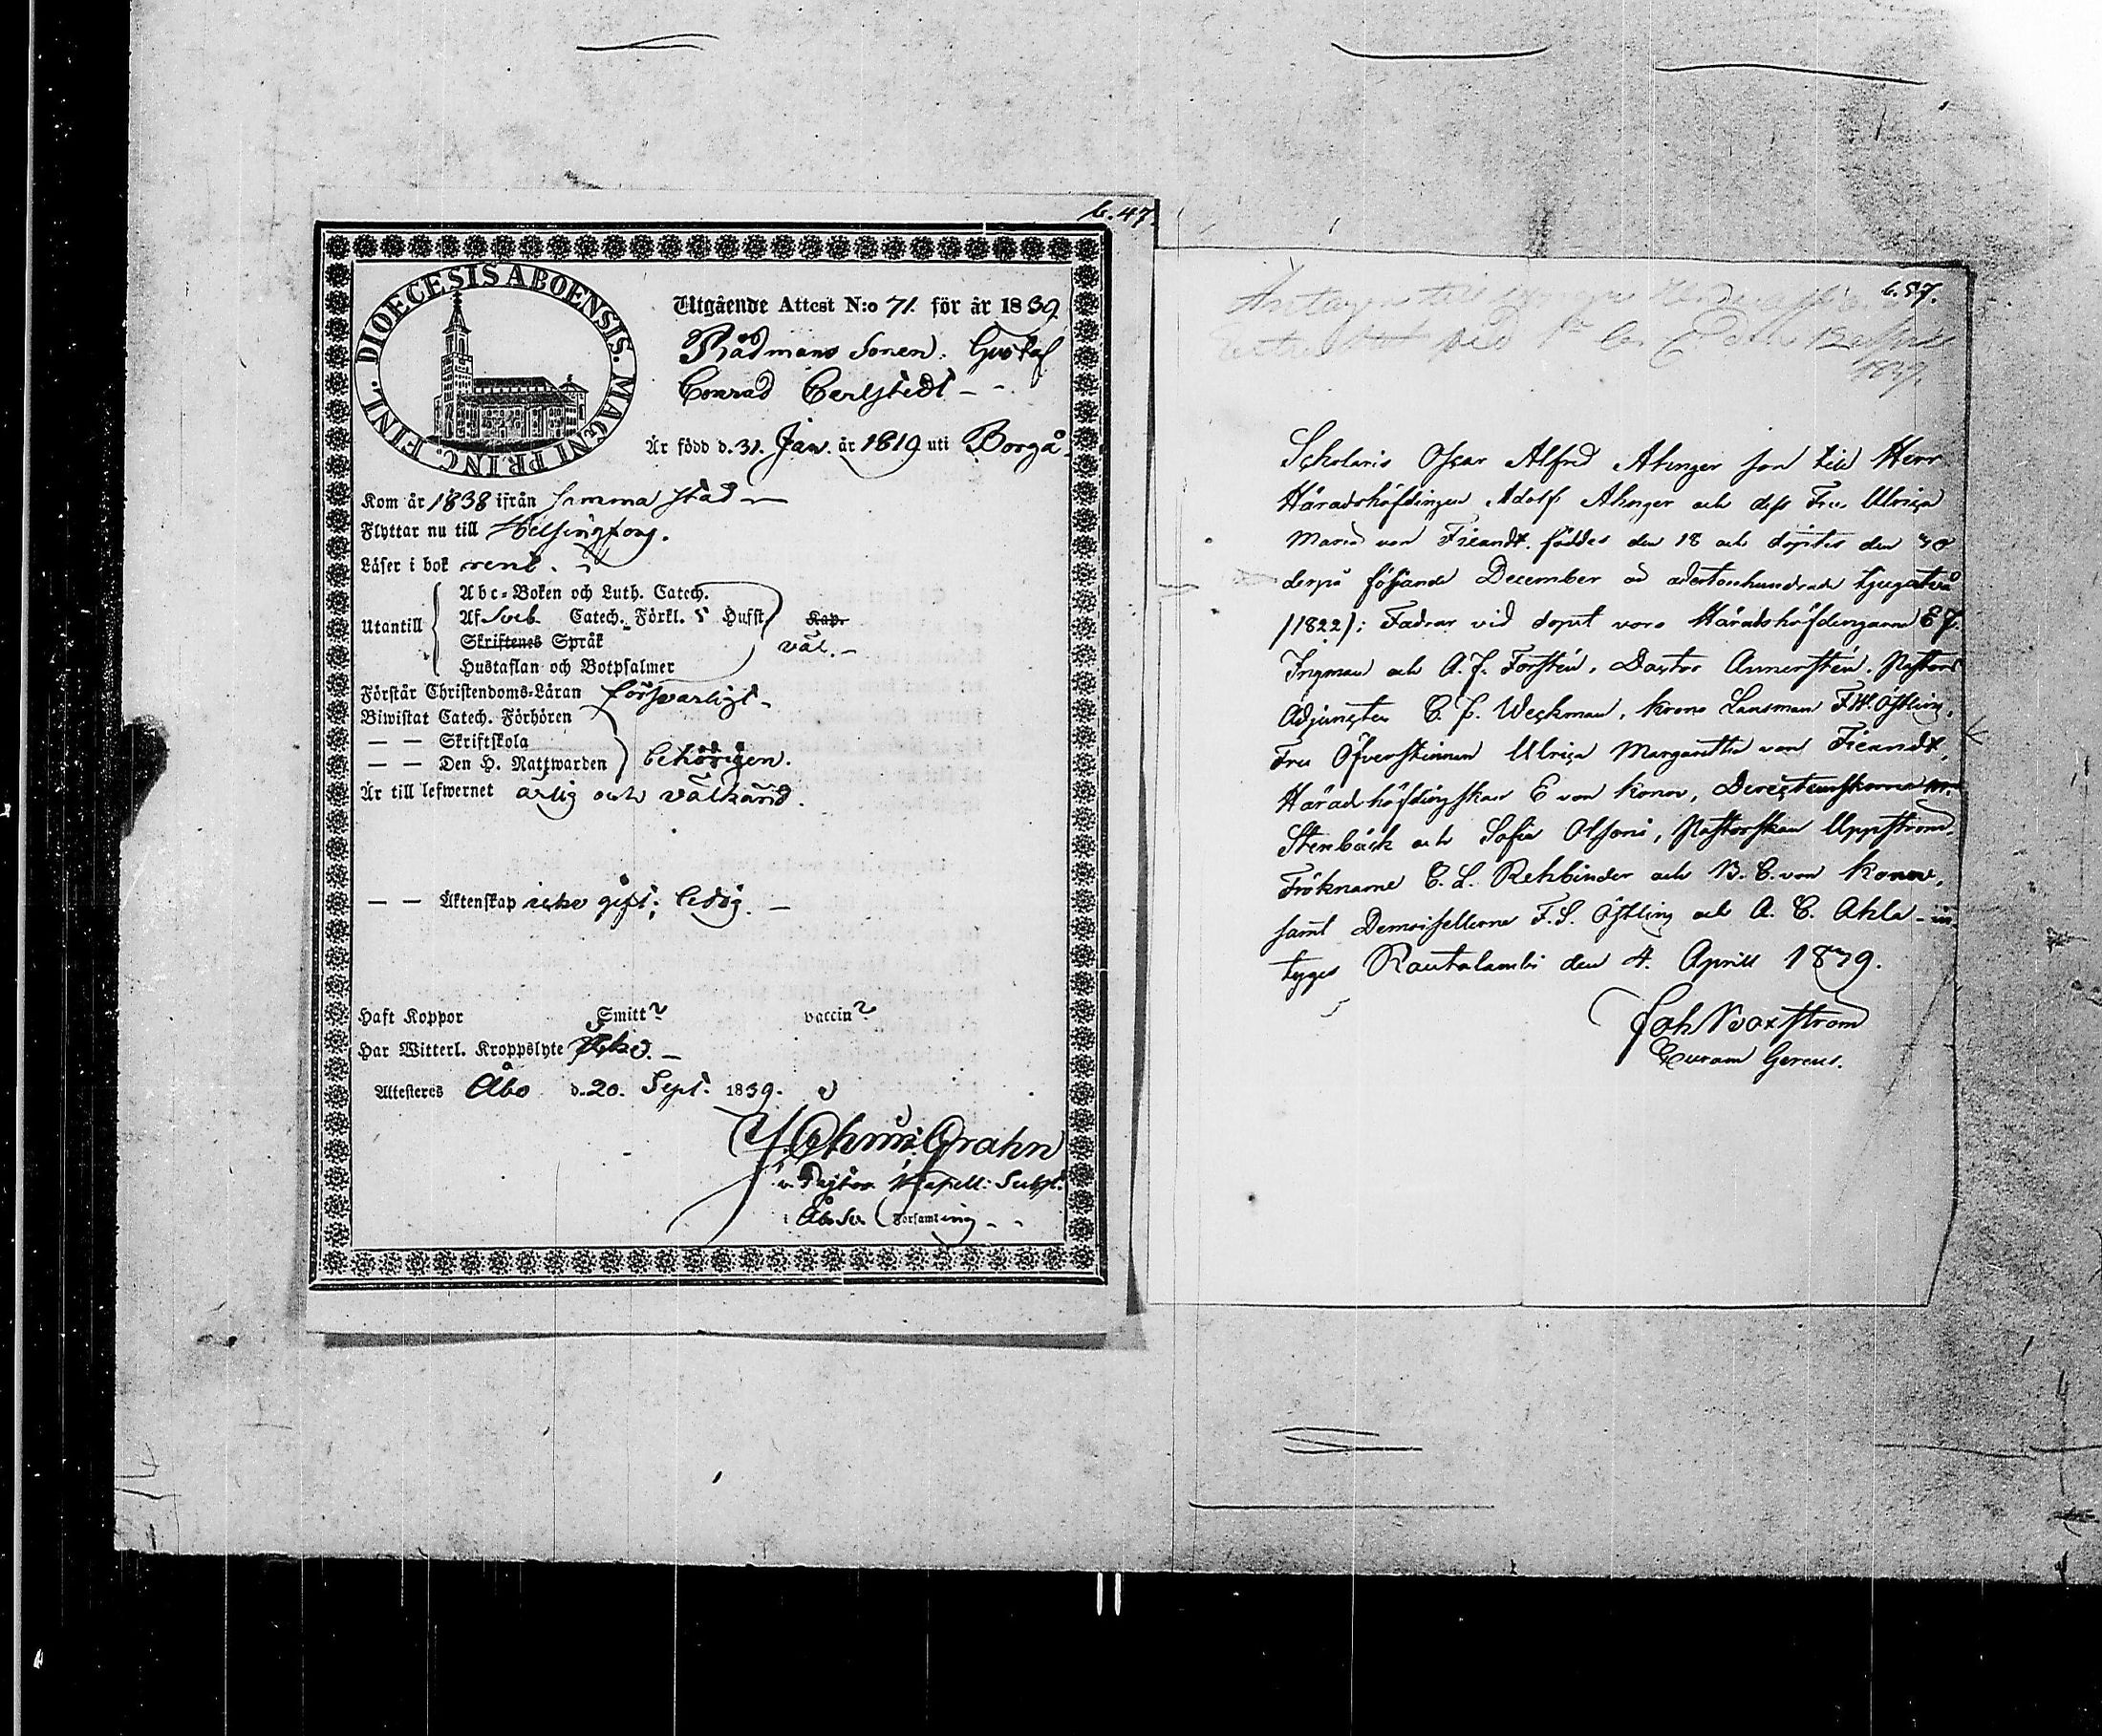 b. 47.
DIOECESIS ABOENSIS. MAGNI PRINC. FINL.
Utgående Attest N:o 71. för år 1839
Rådmans Sonen. Gustaf
Conrad Carlstedt - -
Är född d. 31. Jan. år 1819 uti Borgå.
Kom år 1838 ifrån samma stad -
Flyttar nu till Helsingfors.
Läser i bok rent.
Utantill
Abc-Boken och Luth. Catech.
Af Sveb. Catech. Förkl. Hufst
Skriftenes Språk
Hustaflan och Botpsalmer
Kap.
väl. -
Förstår Christendoms-Läran försvarligt -
Biwistat Catech. Förhören
— — Skriftskola
— — Den H. Nattwarden
behörigen.
Är till lefwernet ärlig och välkänd.
— — Äktenskap icke gift; ledig. —
Haft Koppor Smitt vaccin
Har Witterl. Kroppslyte Icke. -
Attesteras Åbo d. 20. Sept. 1839.
Grahn
v. Pastor Kapell: Subst.
i Åbo Sv. Församling - -
b. 57.
Antages till
vid
1839.
Scholaris Oscar Alfred Ahnger son till Herr
Häradshöfdingen Adolf Ahnger och dess Fru Ulrica
Maria von Fieandt. föddes den 18 och döptes den 30
derpå följande December åd adertonhundrade tjugutvå
/1822/; Fadrar vid dopet voro Häradshöfdingarne E J.
Ingman och A. J. Forstén, Doctor Annerstén, Pastors
Adjuncten C. J. Weckman, Krono Länsman F W. Östling,
Fru Öfverstinnan Ulrica Margaretha von Fieandt,
Häradshöfdingskan E von Konow, Directeurskorna
Stenbäck och Sofia Olsoni, Pastorskan Uppström,
Fröknarne C. L. Rehbinder och B. C. von Konow,
samt Demoisellerne F. S. Östling och A. C. Ahla - in-
tyges Rautalambi den 4. Aprill 1839.
Joh Roxström
Curam Gerens.